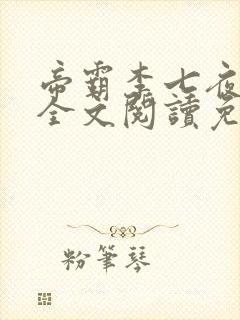 帝霸李七夜
全文閱讀免
粉筆琴